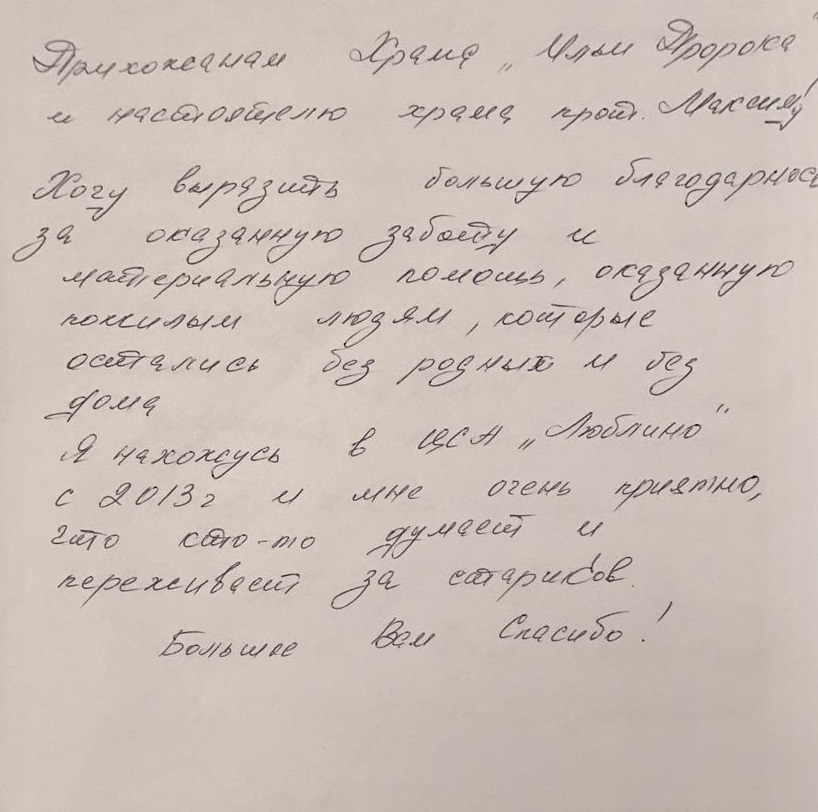 Прихожанам Храма „Ильи Пророка"
и настоятелю храма прот. Максиму!
Хочу выразить большую благодарнос
за оказанную заботу и
материальную помощь, оказанную
пожилым людям, которые
остались без родных и без
дома
Я нахожусь в ЦСА „Люблино"
с 2013г и мне очень приятно,
что кто-то думает и
переживает за стариков.
Большое Вам Спасибо!